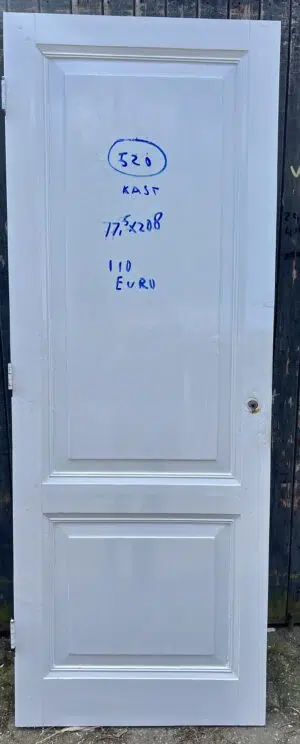 520
KAST
77,5x208
110
EURO